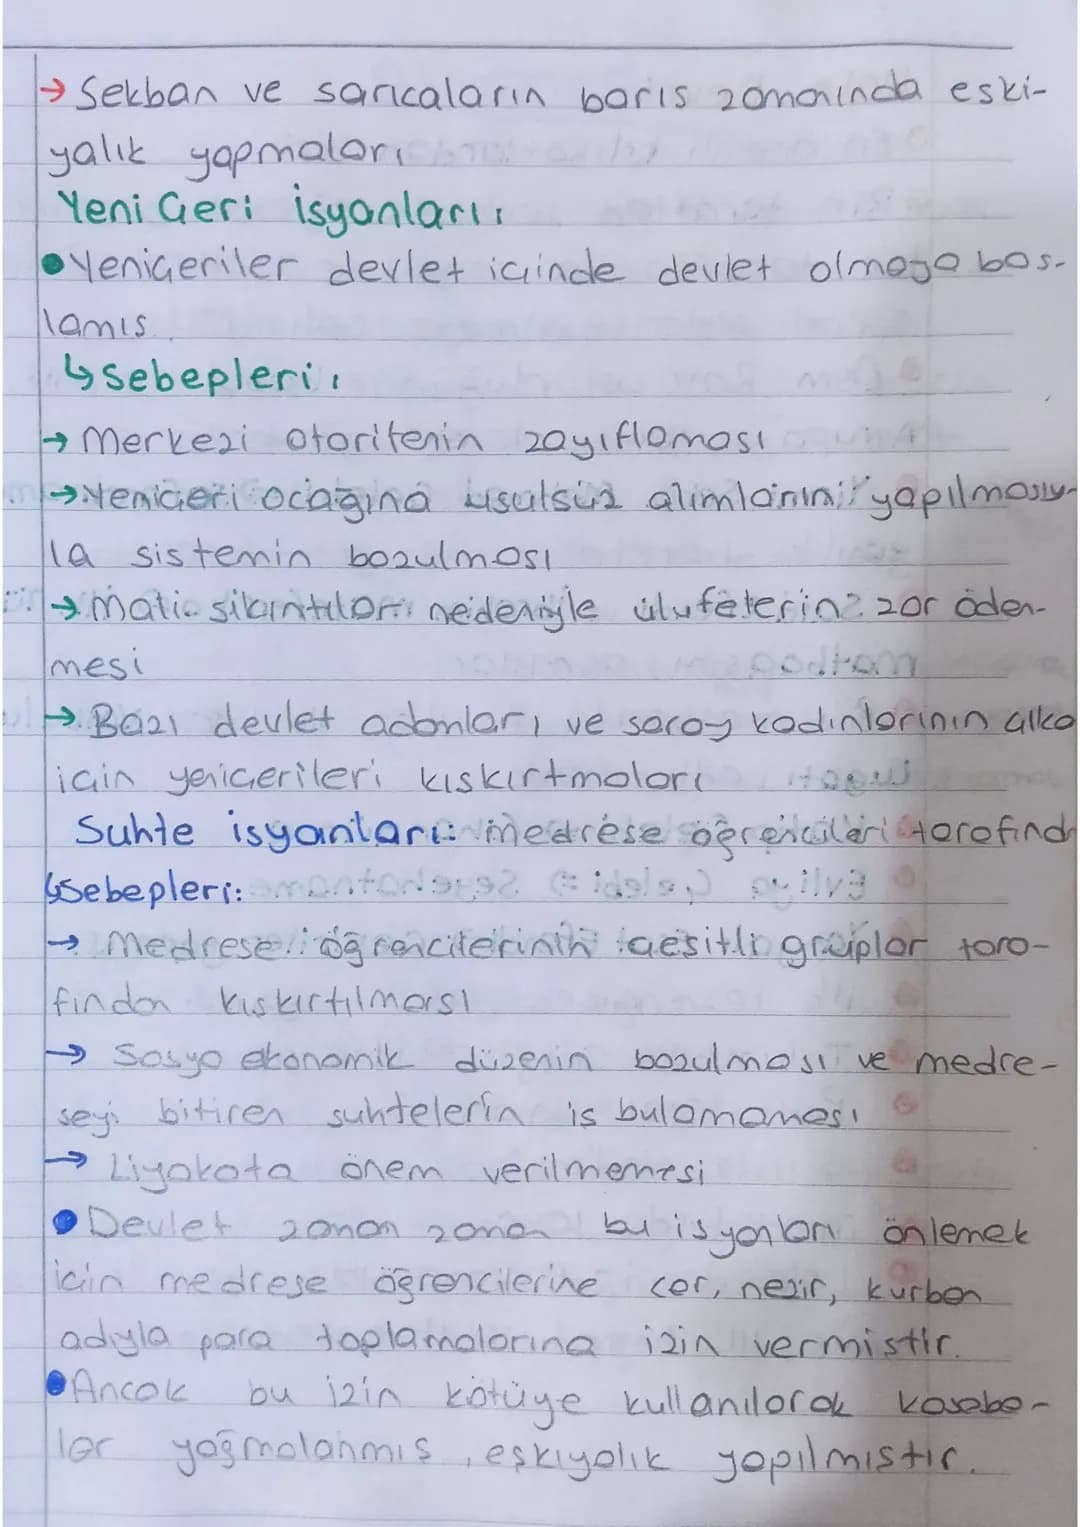 → Sekban ve sarıcaların barıs zamanında eski-
yalık yapmaları
Yeni Çeri İsyanları:
• Yeniçeriler devlet içinde devlet olmaya bas-
lamıs.
↳ Sebepleri:
→ Merkezi otoritenin zayıflaması
→ Yeniçeri ocağına usulsüz alımların yapılmasıy-
la sistemin bozulması
→ Mali sıkıntılar nedeniyle ulufelerin zor öden-
mesi
→ Bazı devlet adamları ve saray kadınlarının çıka
için yeniçerileri kıskırtmaları
Suhte isyanları: medrese öğrencileri tarafınd
↳ Sebepleri:
→ Medrese öğrencilerinin çesitli gruplar tara-
fından kıskırtılması
→ Sosyo ekonomik düzenin bozulması ve medre-
seyi bitiren suhtelerin is bulamaması
→ Liyakata önem verilmemesi
• Devlet zaman zaman bu isyanları önlemek
için medrese öğrencilerine cer, nezir, kurban
adıyla para toplamalarına izin vermistir.
• Ancak bu izin kötüye kullanılarak kasaba-
lar yağmalanmıs, eşkıyalık yapılmıstır.